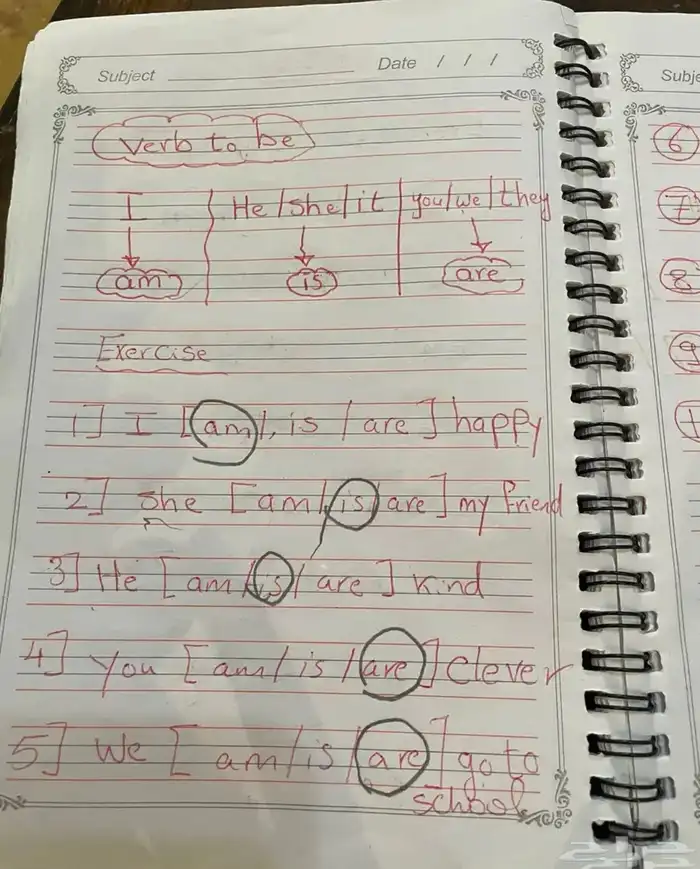 Subject Date / / /
Subje
verb to be
I | He/she/it | you/we/they
am is are
Exercise
1] I [am/, is / are] happy
2] She [am/is/are] my friend
3] He [am/is/ are] kind
4] You [am/ is /are] Clever
5] We [am/is/are] go to
school
6
7
8
9